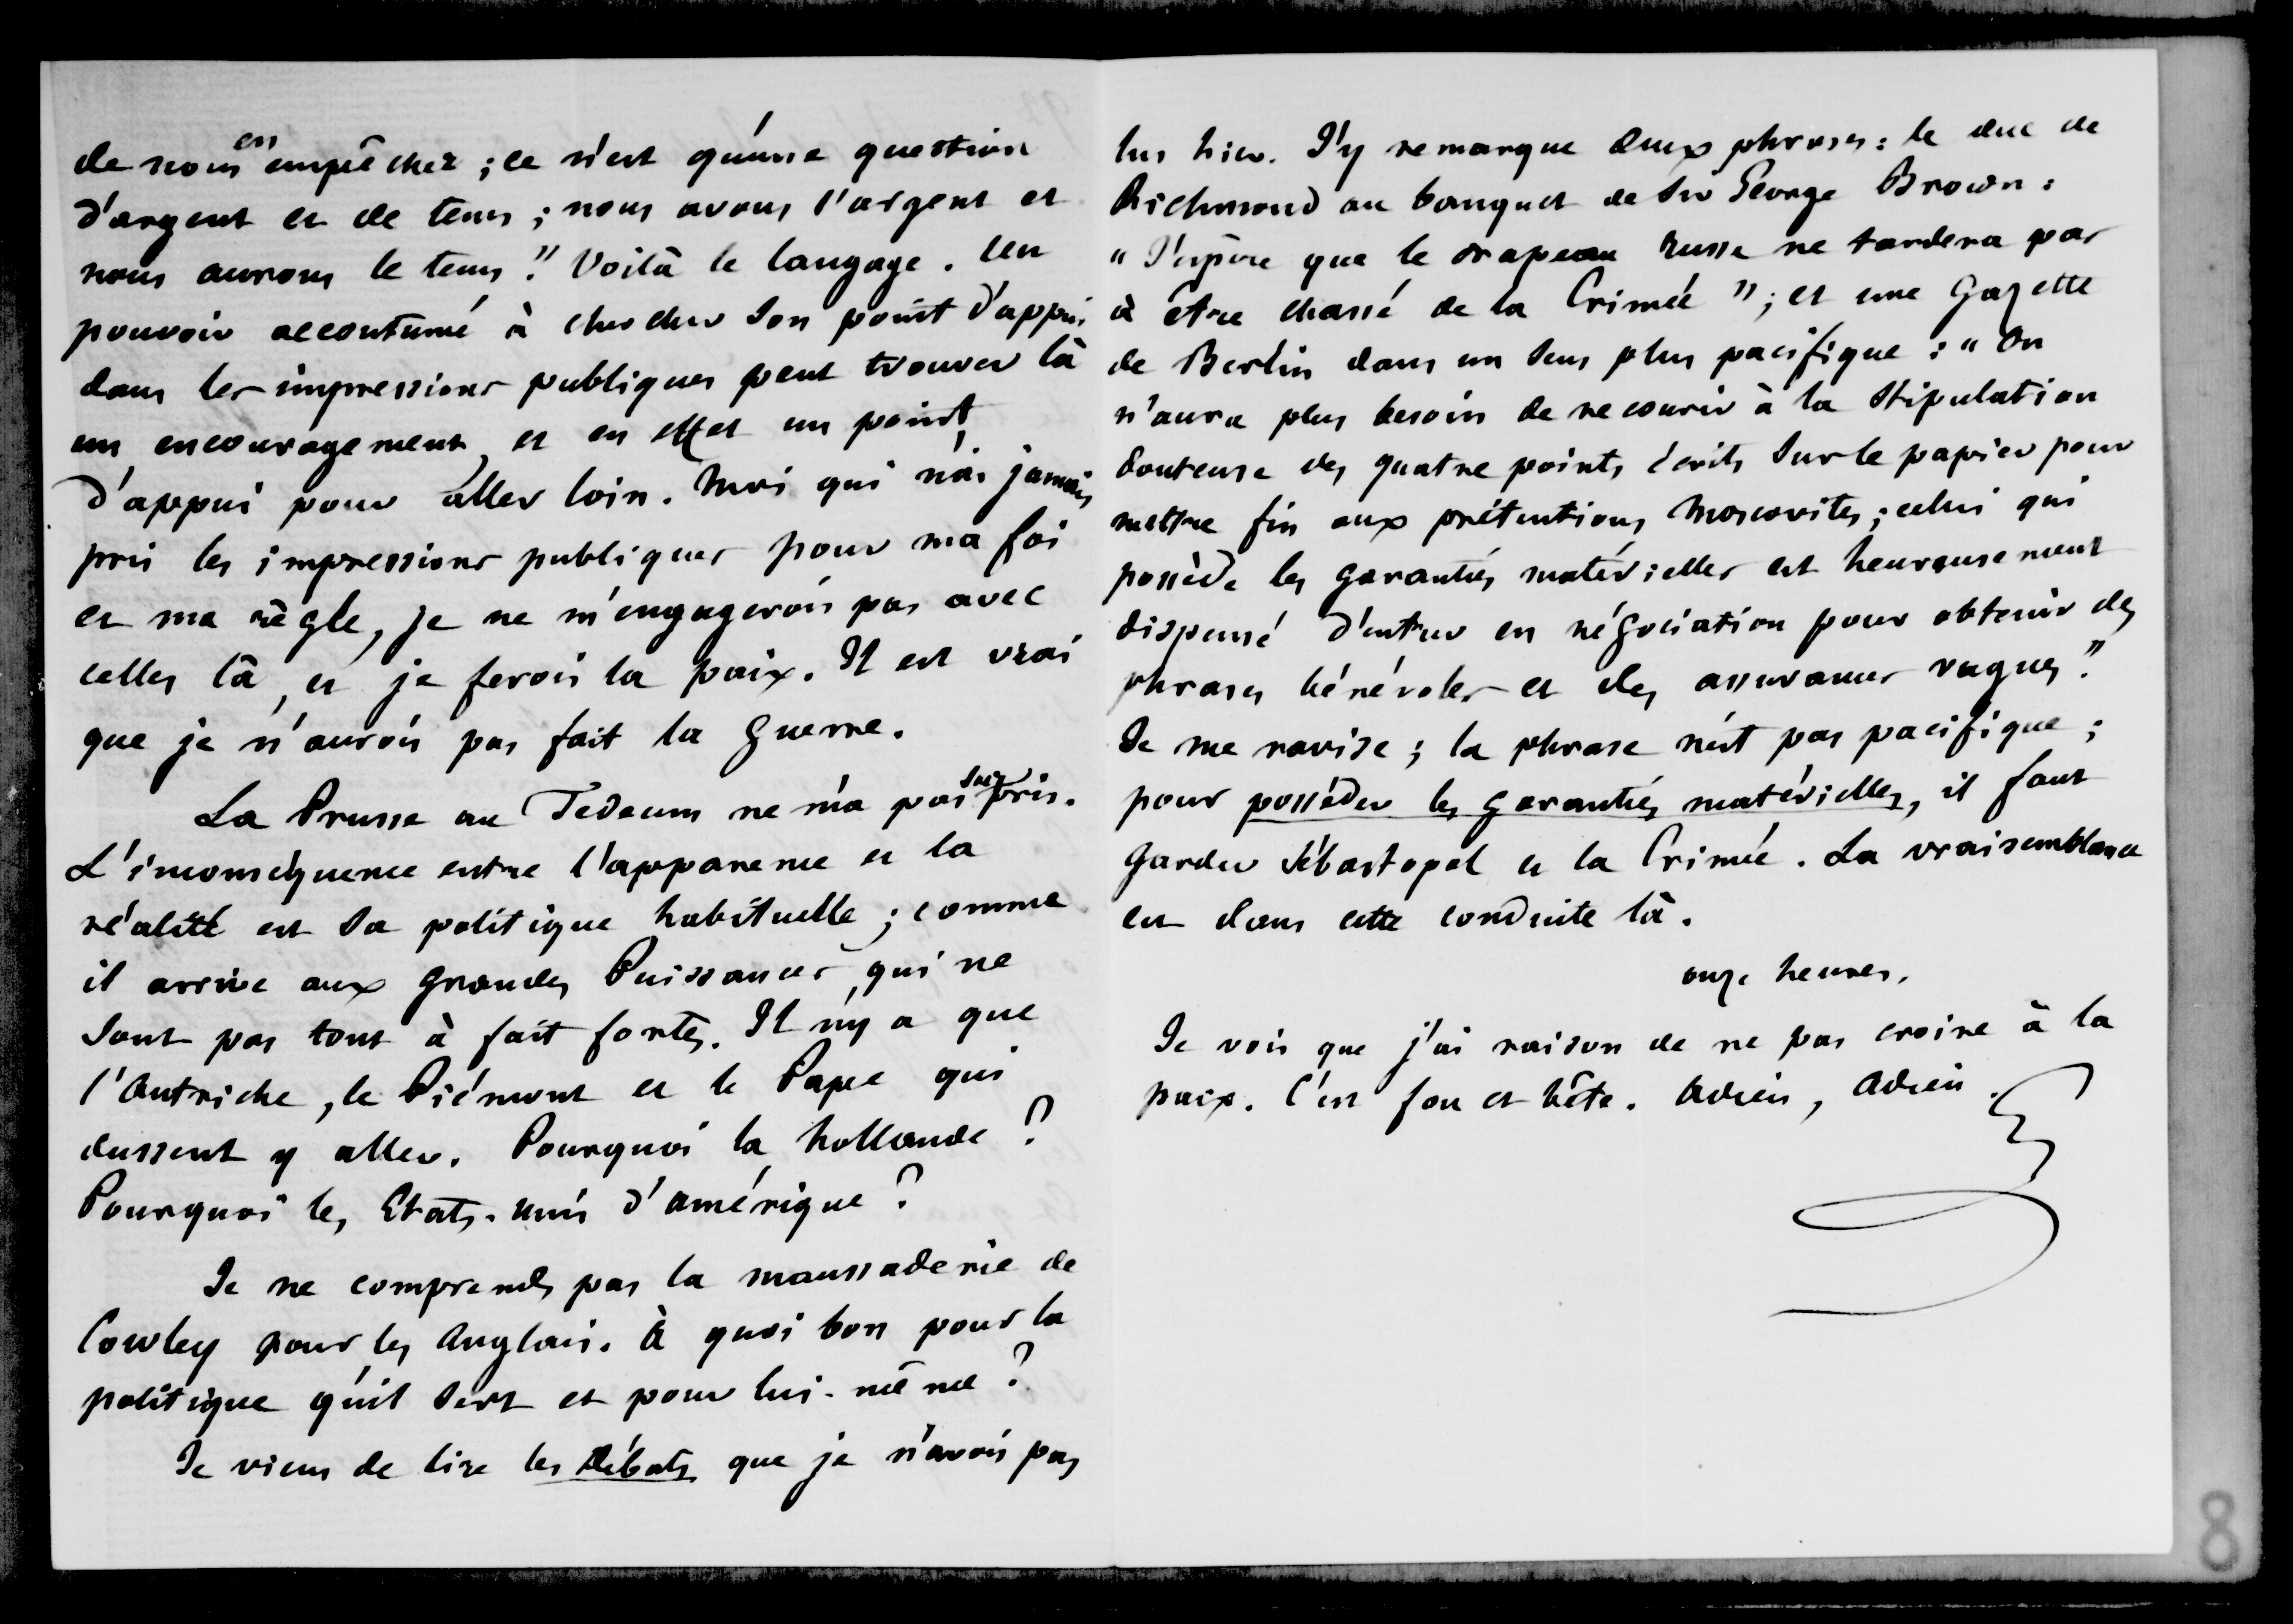 de nous en empêcher ; ce n'est qu'une question
d'argent et de tems ; nous avons l'argent et
nous aurons le tems." Voilà le langage. Un
pouvoir accoutumé à chercher son point d'appui
dans les impressions publiques peut trouver là
un encouragement, et en effet un point
d'appui pour aller loin. Moi qui n'ai jamais
pris les impressions publiques pour ma foi
et ma règle, je ne m'engagerois pas avec
celles là, et je ferois la paix. Il est vrai
que je n'aurois pas fait la guerre.
La Prusse au Tedeum ne m'a pas surpris.
L'inconséquence entre l'apparence et la
réalité est sa politique habituelle ; comme
il arrive aux grandes Puissances, qui ne
sont pas tout à fait fortes. Il n'y a que
l'Autriche, le Piémont et le Pape qui
dussent y aller. Pourquoi la hollande ?
Pourquoi les Etats-unis d'amérique ?
Je ne comprends pas la maussaderie de
Cowley pour les Anglais. À quoi bon pour la
politique qu'il sert et pour lui-même ?
Je viens de lire les Débats que je n'avois pas
lus hier. J'y remarque deux phrases : le duc de
Richmond au banquet de Sir George Brown :
" J'espère que le drapeau russe ne tardera pas
à être chassé de la Crimée " ; et une Gazette
de Berlin dans un sens plus pacifique : " On
n'aura plus besoin de recourir à la stipulation
douteuse des quatre points écrits sur le papier pour
mettre fin aux prétentions Moscovites ; celui qui
possède les garanties matérielles est heureusement
dispensé d'entrer en négociation pour obtenir des
phrases bénévoles et des assurances vagues."
Je me ravise ; la phrase n'est pas pacifique ;
pour posséder les garanties matérielles, il faut
garder Sébastopol et la Crimée. La vraisemblance
est dans cette conduite là.
onze heures.
Je vois que j'ai raison de ne pas croire à la
paix. C'est fou et bête. Adieu, Adieu.
8